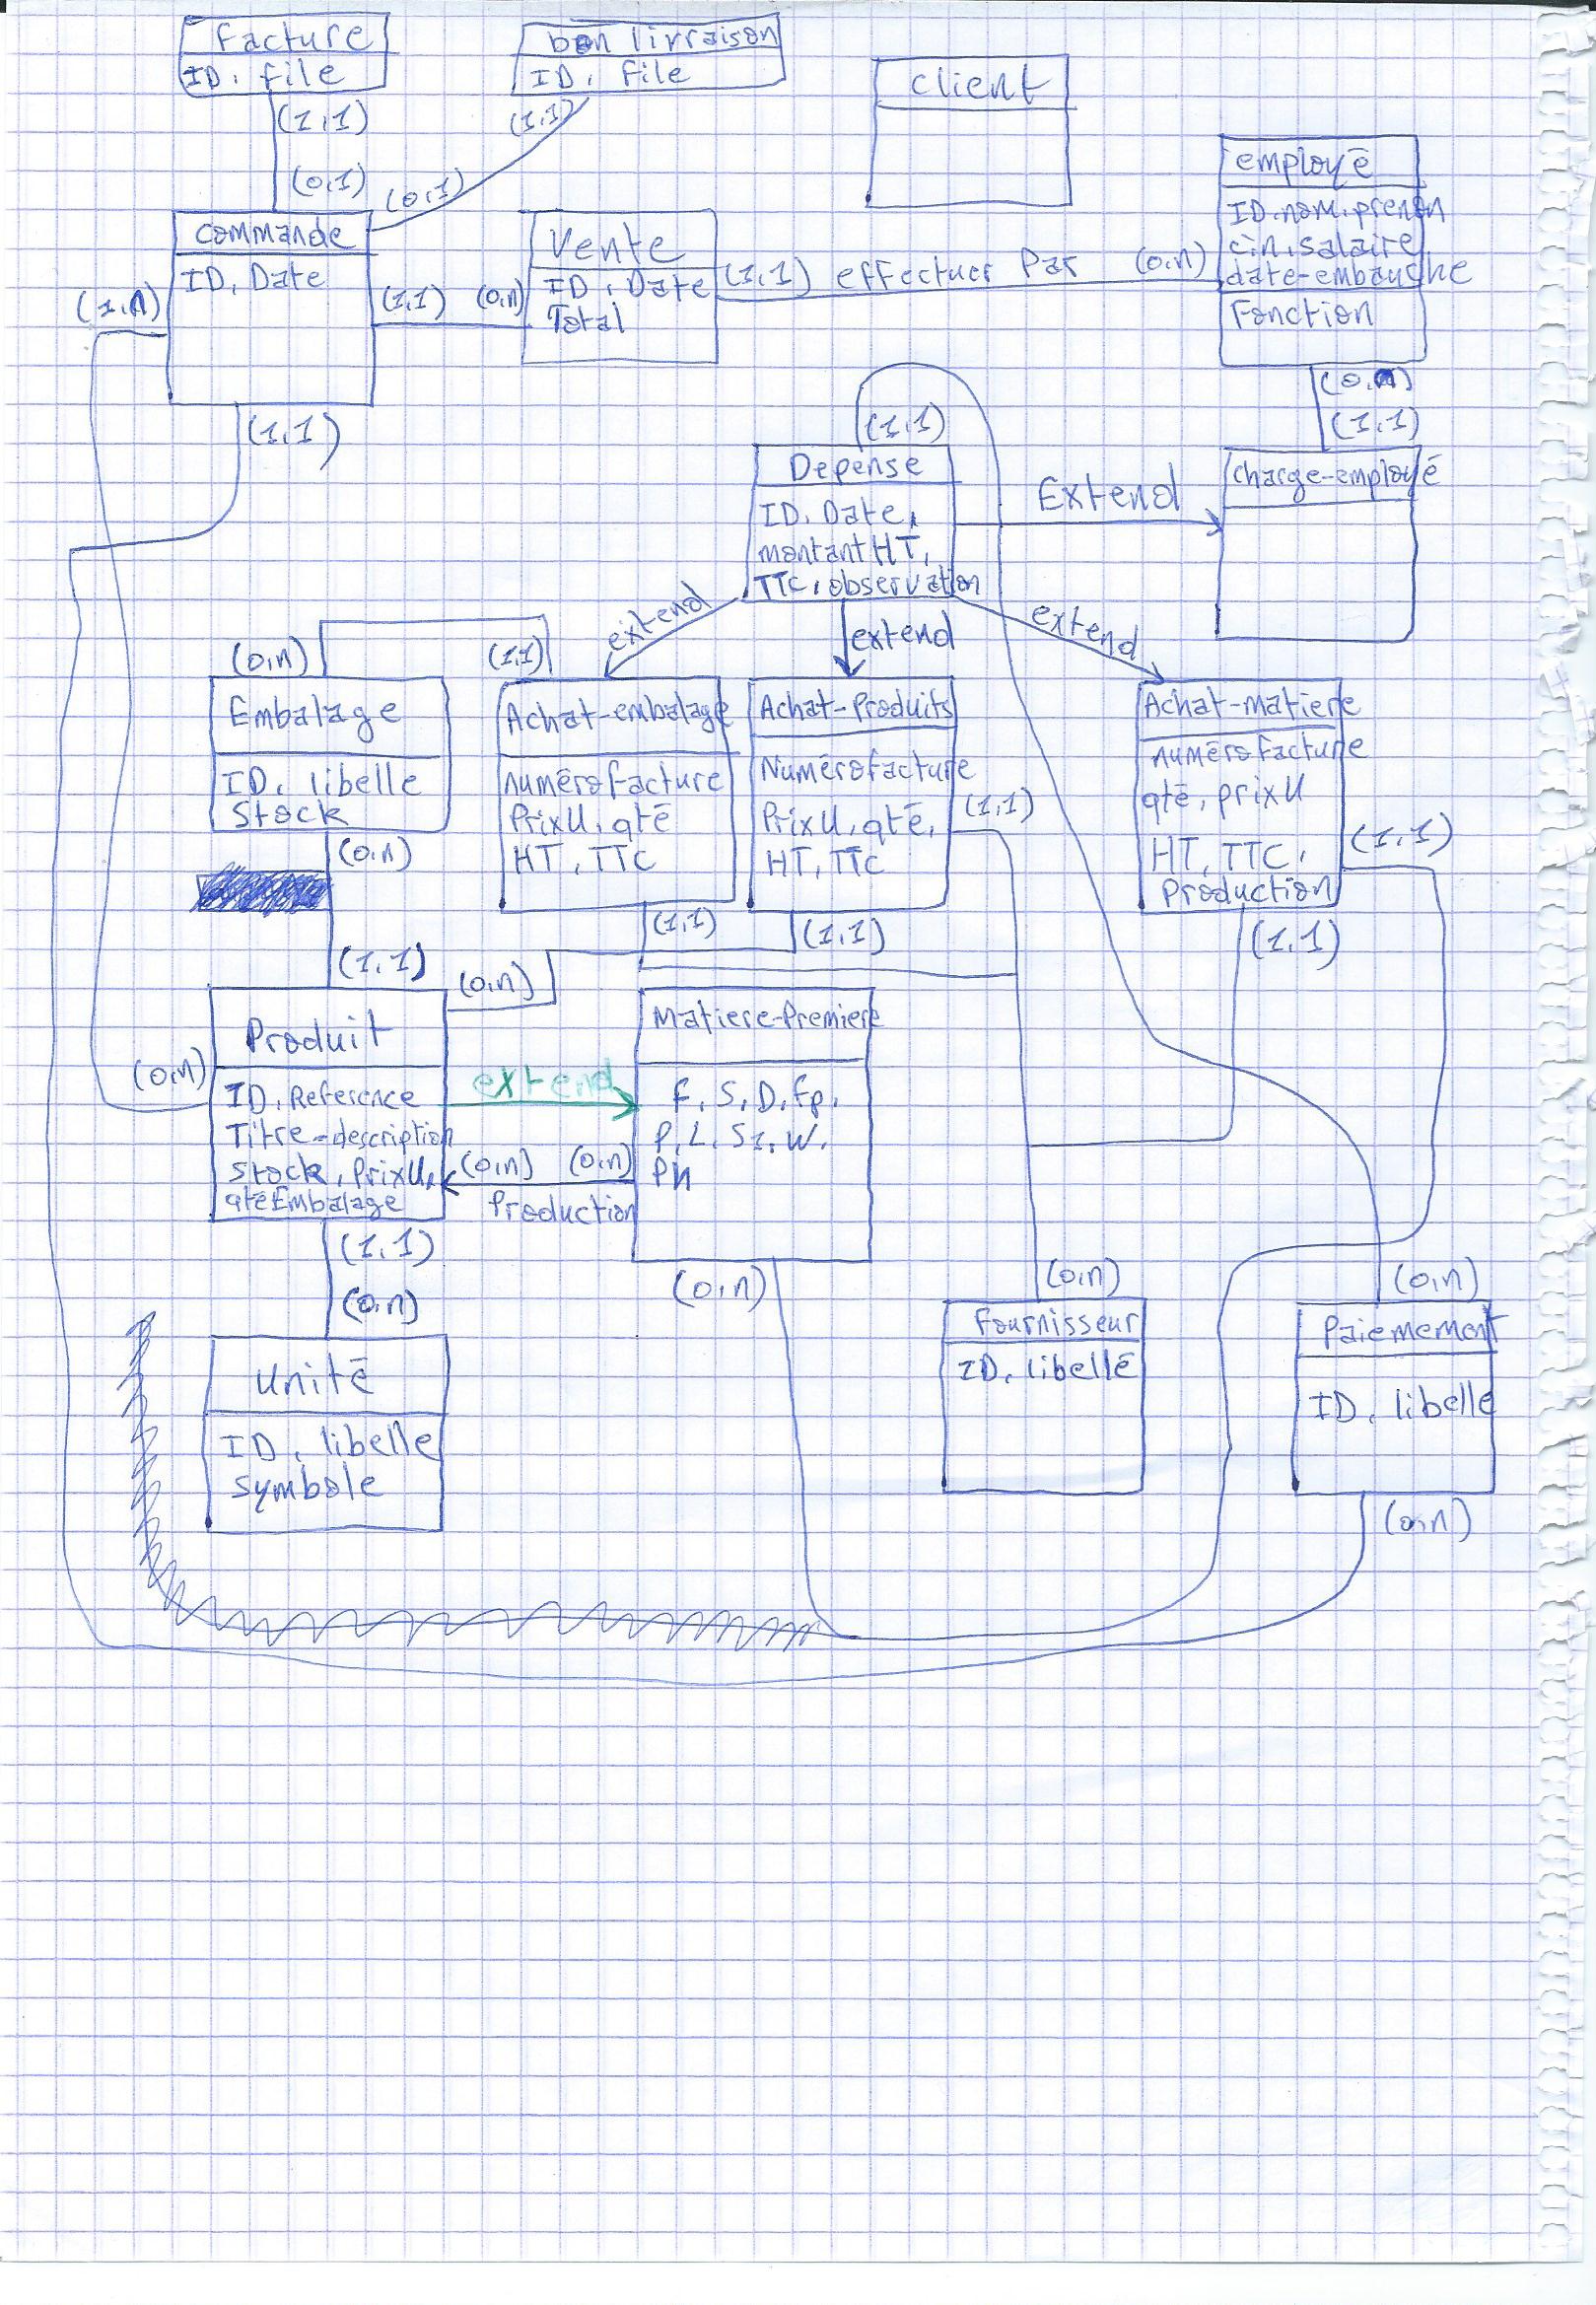 Facture
ID, file
(1,1)
(0,1)
bon livraison
ID, file
(1,1)
(0,1)
client
employé
ID.nom.prenom
cin,salaire
date-embauche
Fonction
(1,1)
commande
ID, Date
(1,n)
(1,1)
(1,1)
Vente
ID, Date
Total
(0,n)
effectuer Par
(0,n)
(1,1)
Depense
ID, Date,
montant HT,
TTC, observation
Extend
(1,1)
charge-employé
extend
extend
extend
(0,n)
(1,1)
Embalage
ID, libelle
Stock
Achat-embalage
numéro facture
PrixU, qté
HT, TTC
Achat-Produits
Numéro facture
PrixU, qté,
HT, TTC
(1,1)
Achat-matiere
numéro facture
qté, prixU
HT, TTC,
Production
(1,1)
(0,n)
(1,1)
(1,1)
(1,1)
(1,1)
(0,n)
Produit
(0,n)
ID, Reference
Titre-description
Stock, PrixU,
qteEmbalage
extend
(0,n) (0,n)
Production
Matiere-Premiere
F, S, D, Fp,
P, L, Sz, W,
PN
(1,1)
(0,n)
(0,n)
(0,n)
(0,n)
Unité
ID, libelle
Symbole
Fournisseur
ID, libellé
Paiemement
ID, libelle
(0,n)